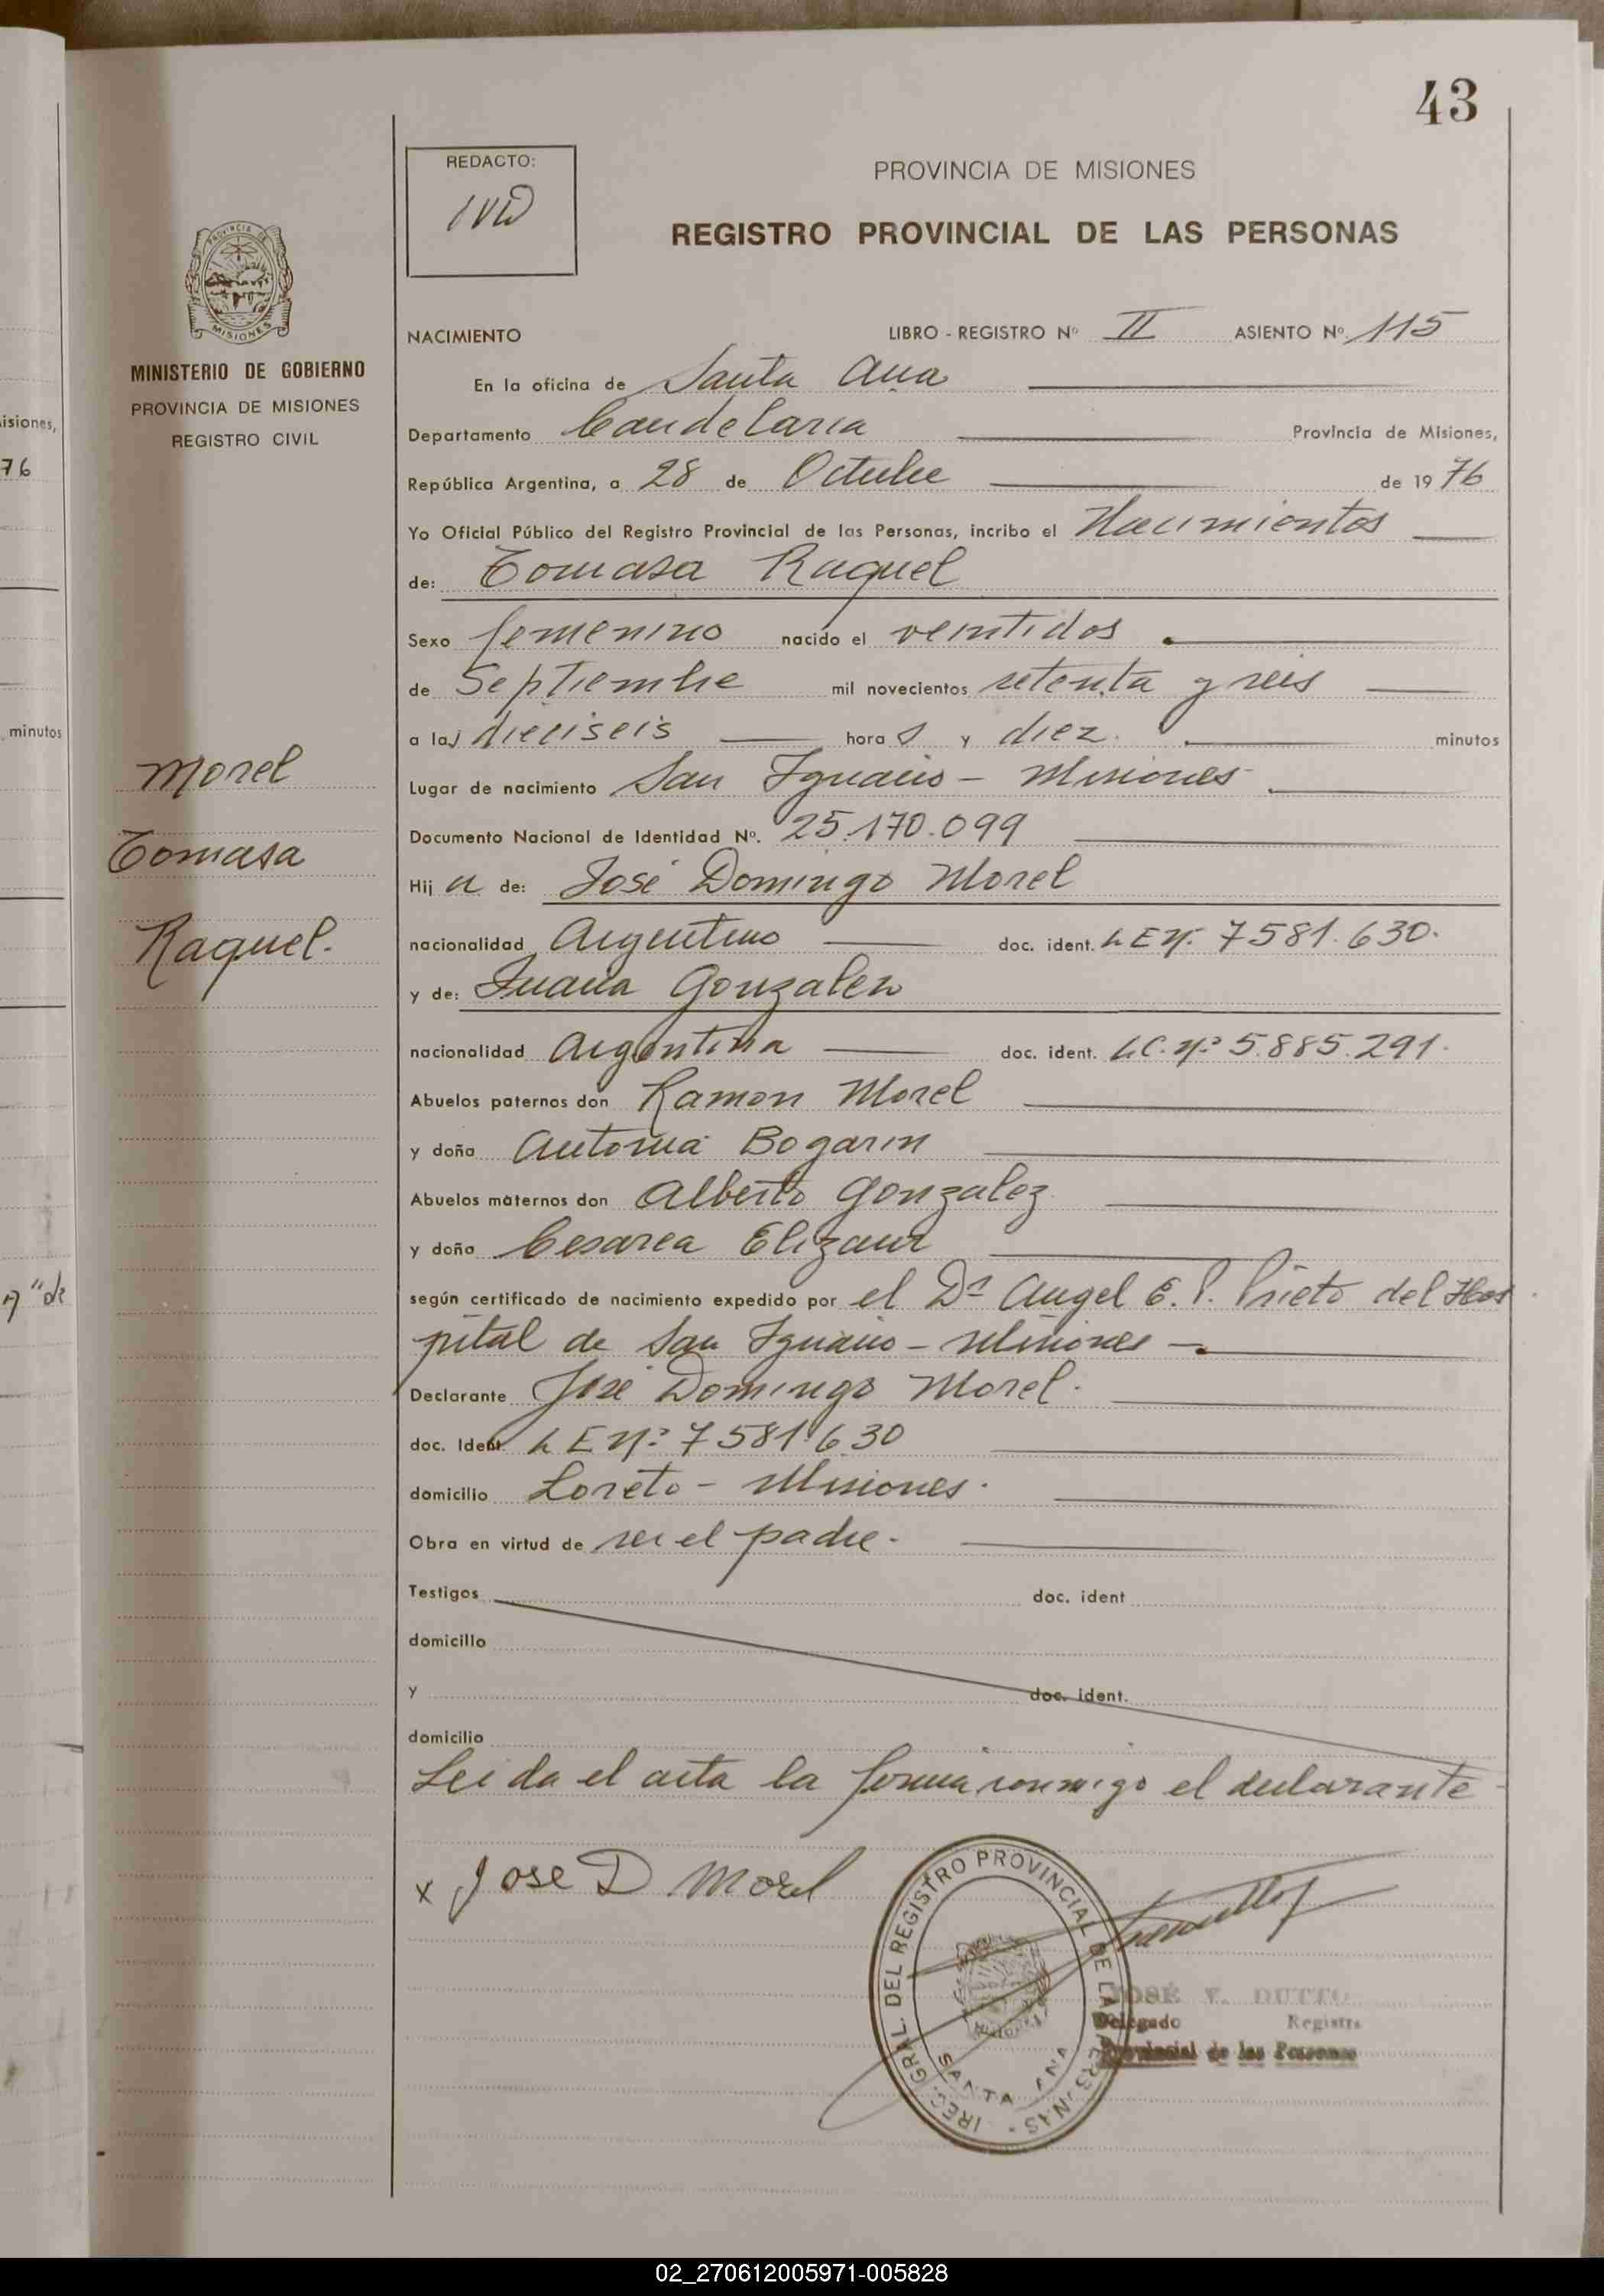 43
REDACTO:
PROVINCIA DE MISIONES
REGISTRO PROVINCIAL DE LAS PERSONAS
PROVINCIA DE
MISIONES
MINISTERIO DE GOBIERNO
PROVINCIA DE MISIONES
REGISTRO CIVIL
isiones,
76
minutos
Morel
Tomasa
Raquel.
NACIMIENTO LIBRO - REGISTRO Nº II ASIENTO Nº 115
En la oficina de Santa Ana
Departamento Candelaria Provincia de Misiones,
República Argentina, a 28 de Octubre de 1976
Yo Oficial Público del Registro Provincial de las Personas, incribo el Nacimientos
de: Tomasa Raquel
Sexo femenino nacido el veintidos
de Septiembre mil novecientos setenta y seis
a las dieciseis horas y diez. minutos
Lugar de nacimiento San Ignacio - Misiones
Documento Nacional de Identidad Nº. 25.170.099
Hija de: José Domingo Morel
nacionalidad Argentino doc. ident. L E Nº. 7581.630.
y de: Juana Gonzalez
nacionalidad Argentina doc. ident. L.C. Nº 5.885.291.
Abuelos paternos don Ramon Morel
y doña Antonia Bogarin
Abuelos maternos don Alberto Gonzalez
y doña Cesarea Elizaur
según certificado de nacimiento expedido por el Dr Angel E. P. Prieto del Hos
pital de San Ignacio - Misiones -
Declarante José Domingo Morel.
doc. Ident L E Nº 7581.630
domicilio Loreto - Misiones.
Obra en virtud de ser el padre.
Testigos doc. ident
domicilio
y doc. ident.
domicilio
Leida el acta la firma conmigo el declarante
x Jose D Morel
DIREC. GRAL. DEL REGISTRO PROVINCIAL DE LAS PERSONAS
SANTA ANA
JOSÉ V. DUTTO
Delegado Registro
Provincial de las Personas
02_270612005971-005828